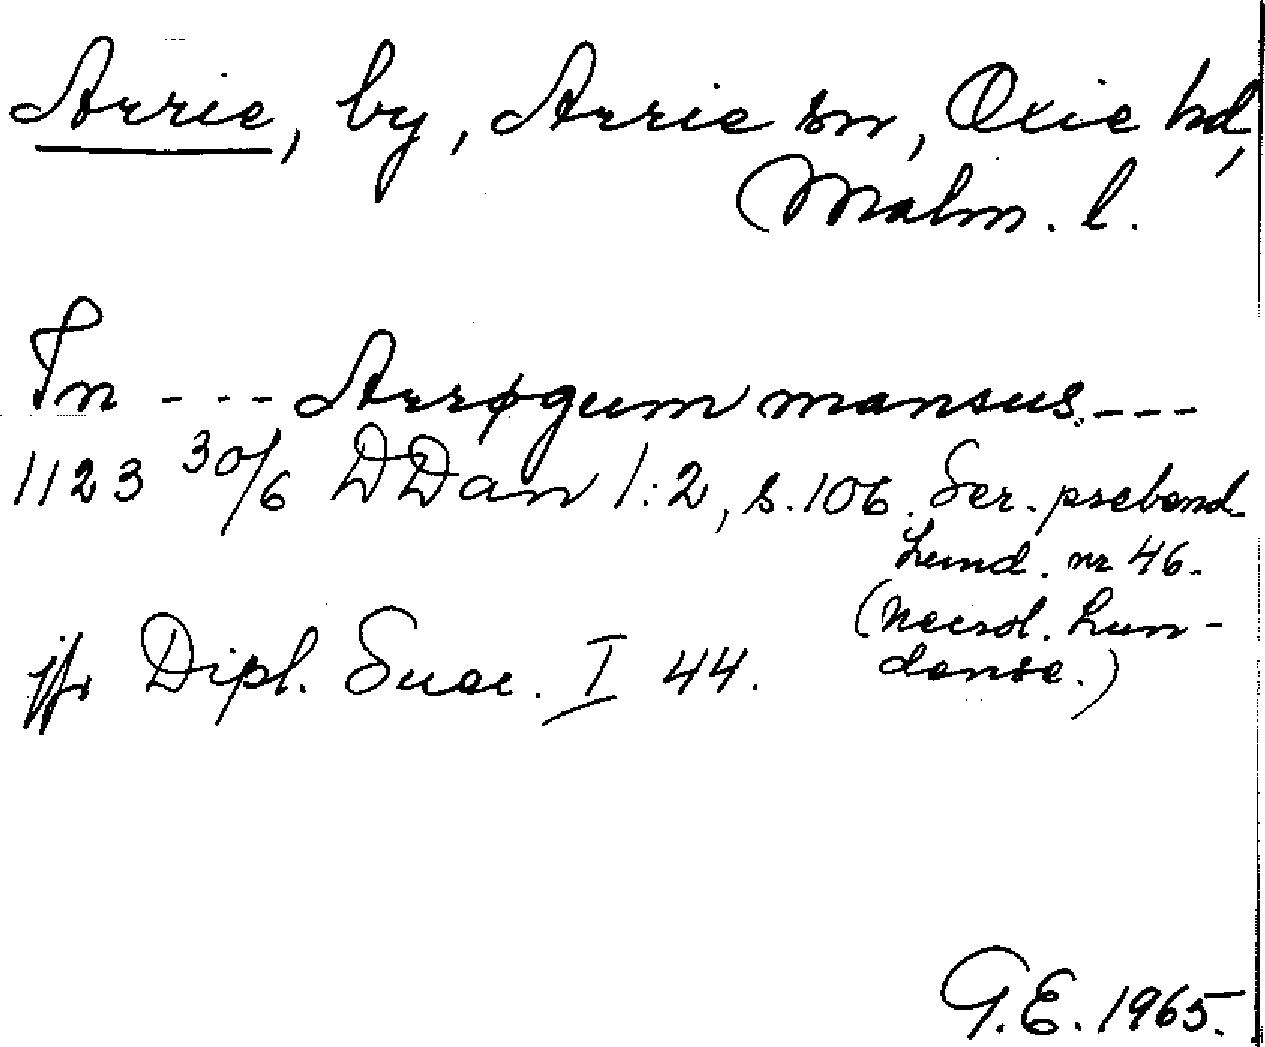 Arrie, by, Arrie sn, Oxie hd,
Malm. l.
In --- Arrøgum mansus ---
1123 30/6 DDan 1:2, s. 106. Ser. prebend.
Lund. nr 46.
(Necrol. Lun-
dense.)
jfr Dipl. Suec. I 44.
G.E. 1965.